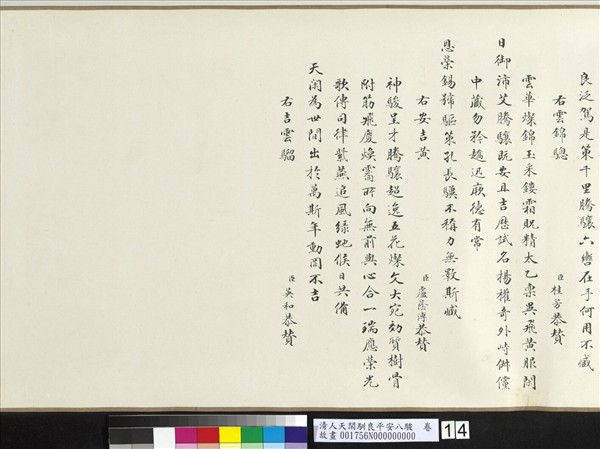 良泛駕是策千里騰驤六轡在手何用不臧
右雲錦驄
臣桂芳恭贊
雲華燦錦玉采鏤霜貺精太乙稟異飛黃服閑
日御沛艾騰驤既安且吉歷試名揚權奇外峙倜儻
中藏勿矜趫迅厥德有常
恩榮錫號驅策孔長驥不稱力無斁斯臧
右安吉黃
臣盧蔭溥恭贊
神駿呈才騰驤超逸五花燦文大宛効質樹骨
附筋飛度煥霱所向無前與心合一瑞應榮光
歌傳司律紫燕追風綠虵候日共備
天閑為世間出於萬斯年動罔不吉
右吉雲騮
臣英和恭贊
清人天閑馴良平安八駿 卷
故畫 001756N000000000
14